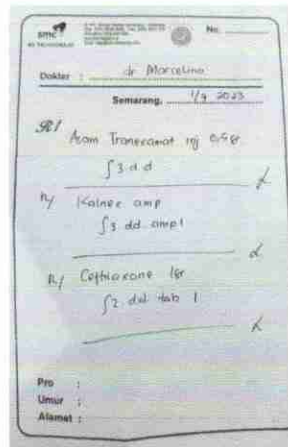 smc
RS TELOGOREJO
No.
Dokter : dr Marcelino
Semarang, 1/9 2023
R/ Asam Tranexamat inj 0,5gr
∫3 d d
R/ Kalnex amp
∫3 dd amp 1
R/ Ceftriaxone 1gr
∫2 dd tab 1
Pro :
Umur :
Alamat :